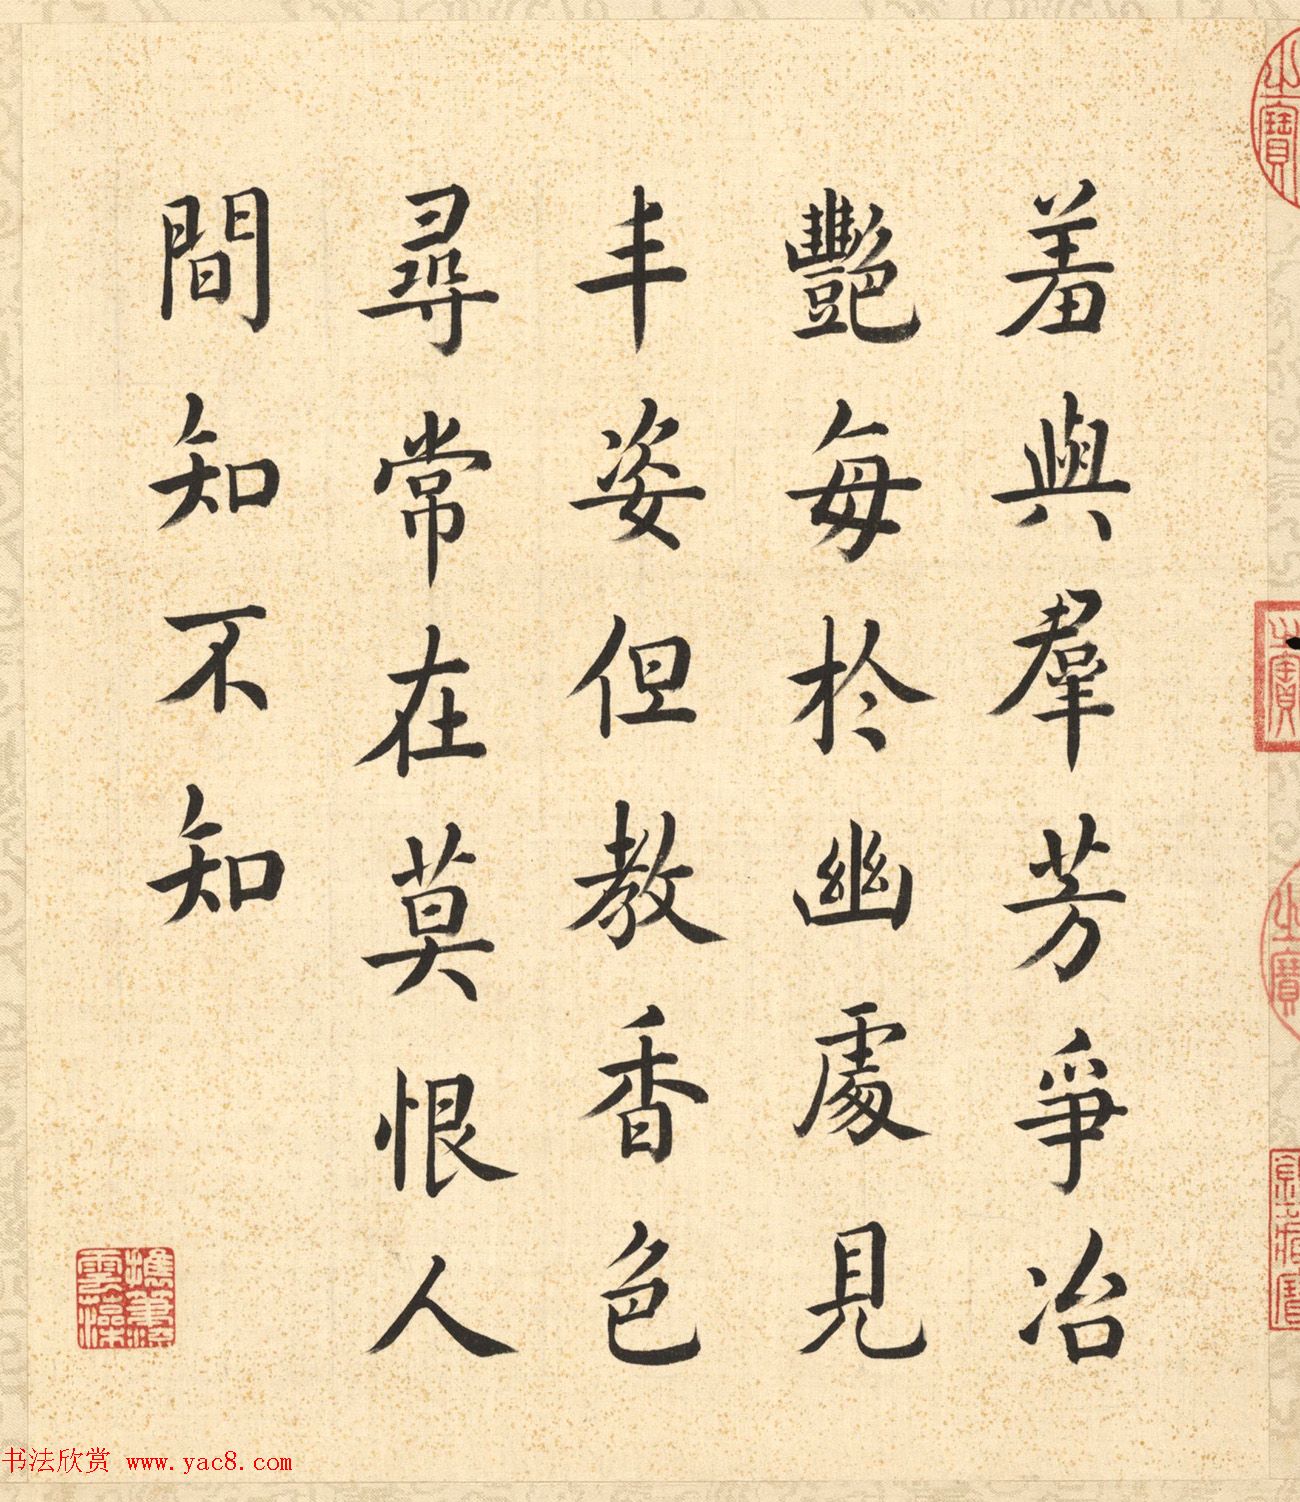 羞與羣芳爭冶
豔每於幽處見
丰姿但教香色
尋常在莫恨人
間知不知
書法欣赏 www.yac8.com